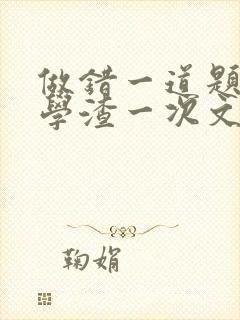 做錯一道題
學渣一次文
鞠娟